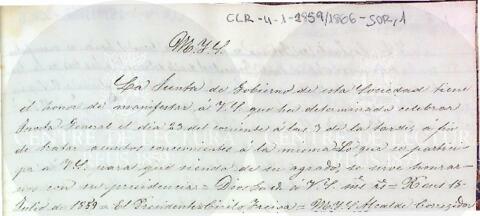 CLR-4-1-1859/1866-SOR,1
M.Y.S.
La Junta de Gobierno de esta Sociedad tiene
el honor de manifestar á V.S. que ha determinado celebrar
Junta General el dia 23 del corriente á las 3 de la tarde á fin
de tratar asuntos concernientes á la misma. Lo que se participa
á V.S. para que siendo de su agrado, se sirva honrar-
nos con su presidencia = Dios gue á V.S. ms as = Reus 15
Julio de 1859 = El Presidente = Cirilo Freixa = M.Y.S. Alcalde Corregidor
CENTRE DE LECTURA
REUS 1859